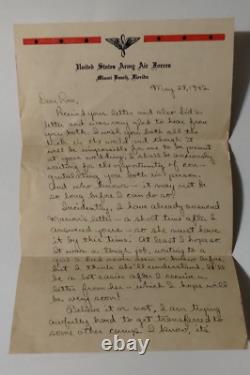 United States Army Air Forces
Miami Beach, Florida
May 28, 1942
Dear Rose,
Received your letter and also Sid's
letter and was very glad to hear from
you both. I wish you both all the
luck in the world and though it
will be impossible for me to be present
at your wedding, I shall be anxiously
waiting for the opportunity of con-
gratulating you both in person.
And who knows — it may not be
so long before I can do so!
Incidently, I have already answered
letter — a short time after I
answered yours — so she must have
it by this time. At least I hope so.
It was a tough job, writing to a
girl I had never seen or before,
but I think she'll understand. It'll be
a lot easier after I receive a
letter from her — which I hope will
be very soon!
Believe it or not, I am trying
awfully hard to get transferred to
some other camp. I know, it's